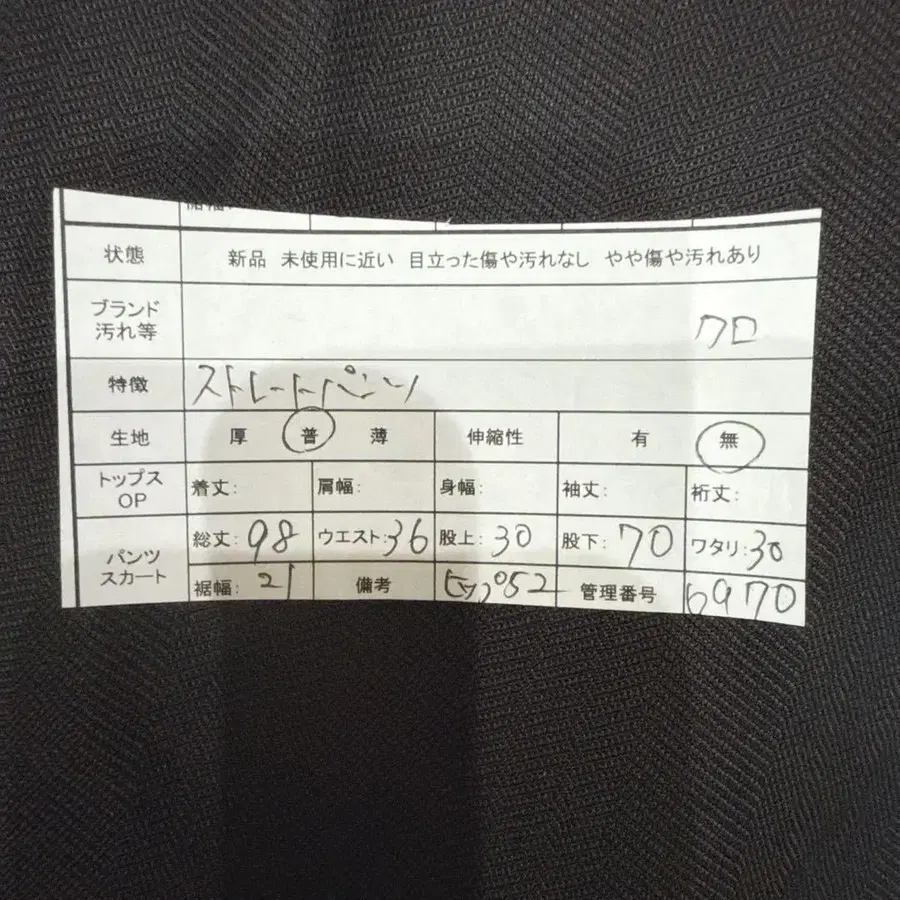 状態 新品 未使用に近い 目立った傷や汚れなし やや傷や汚れあり
ブランド
汚れ等 クロ
特徴 ストレートパンツ
生地 厚 普 薄 伸縮性 有 無
トップス
OP 着丈: 肩幅: 身幅: 袖丈: 裄丈:
パンツ
スカート
総丈: 98 ウエスト: 36 股上: 30 股下: 70 ワタリ: 30
裾幅: 21 備考 ヒップ52 管理番号 6970